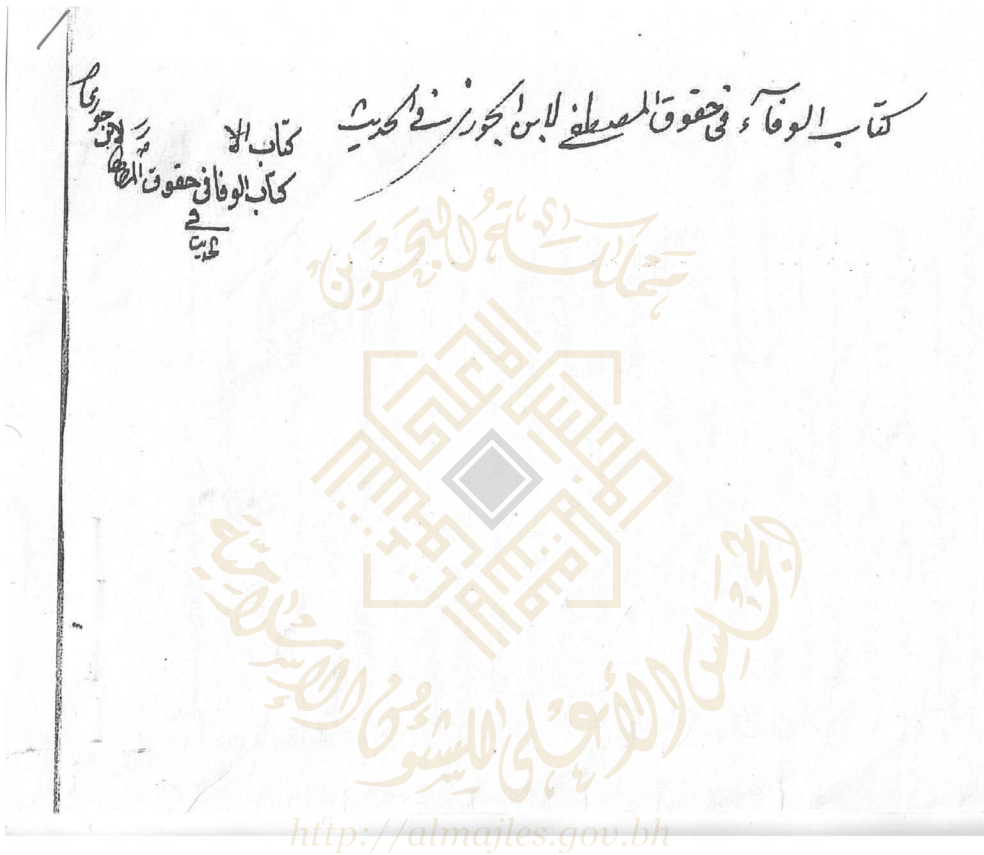 كتاب الوفآء في حقوق المصطفى لابن الجوزي في الحديث
كتاب الا
كتاب الوفا في حقوق المصطفى لابن
في
مملكة البحرين
المجلس الأعلى للشئون الإسلامية
http://almajles.gov.bh